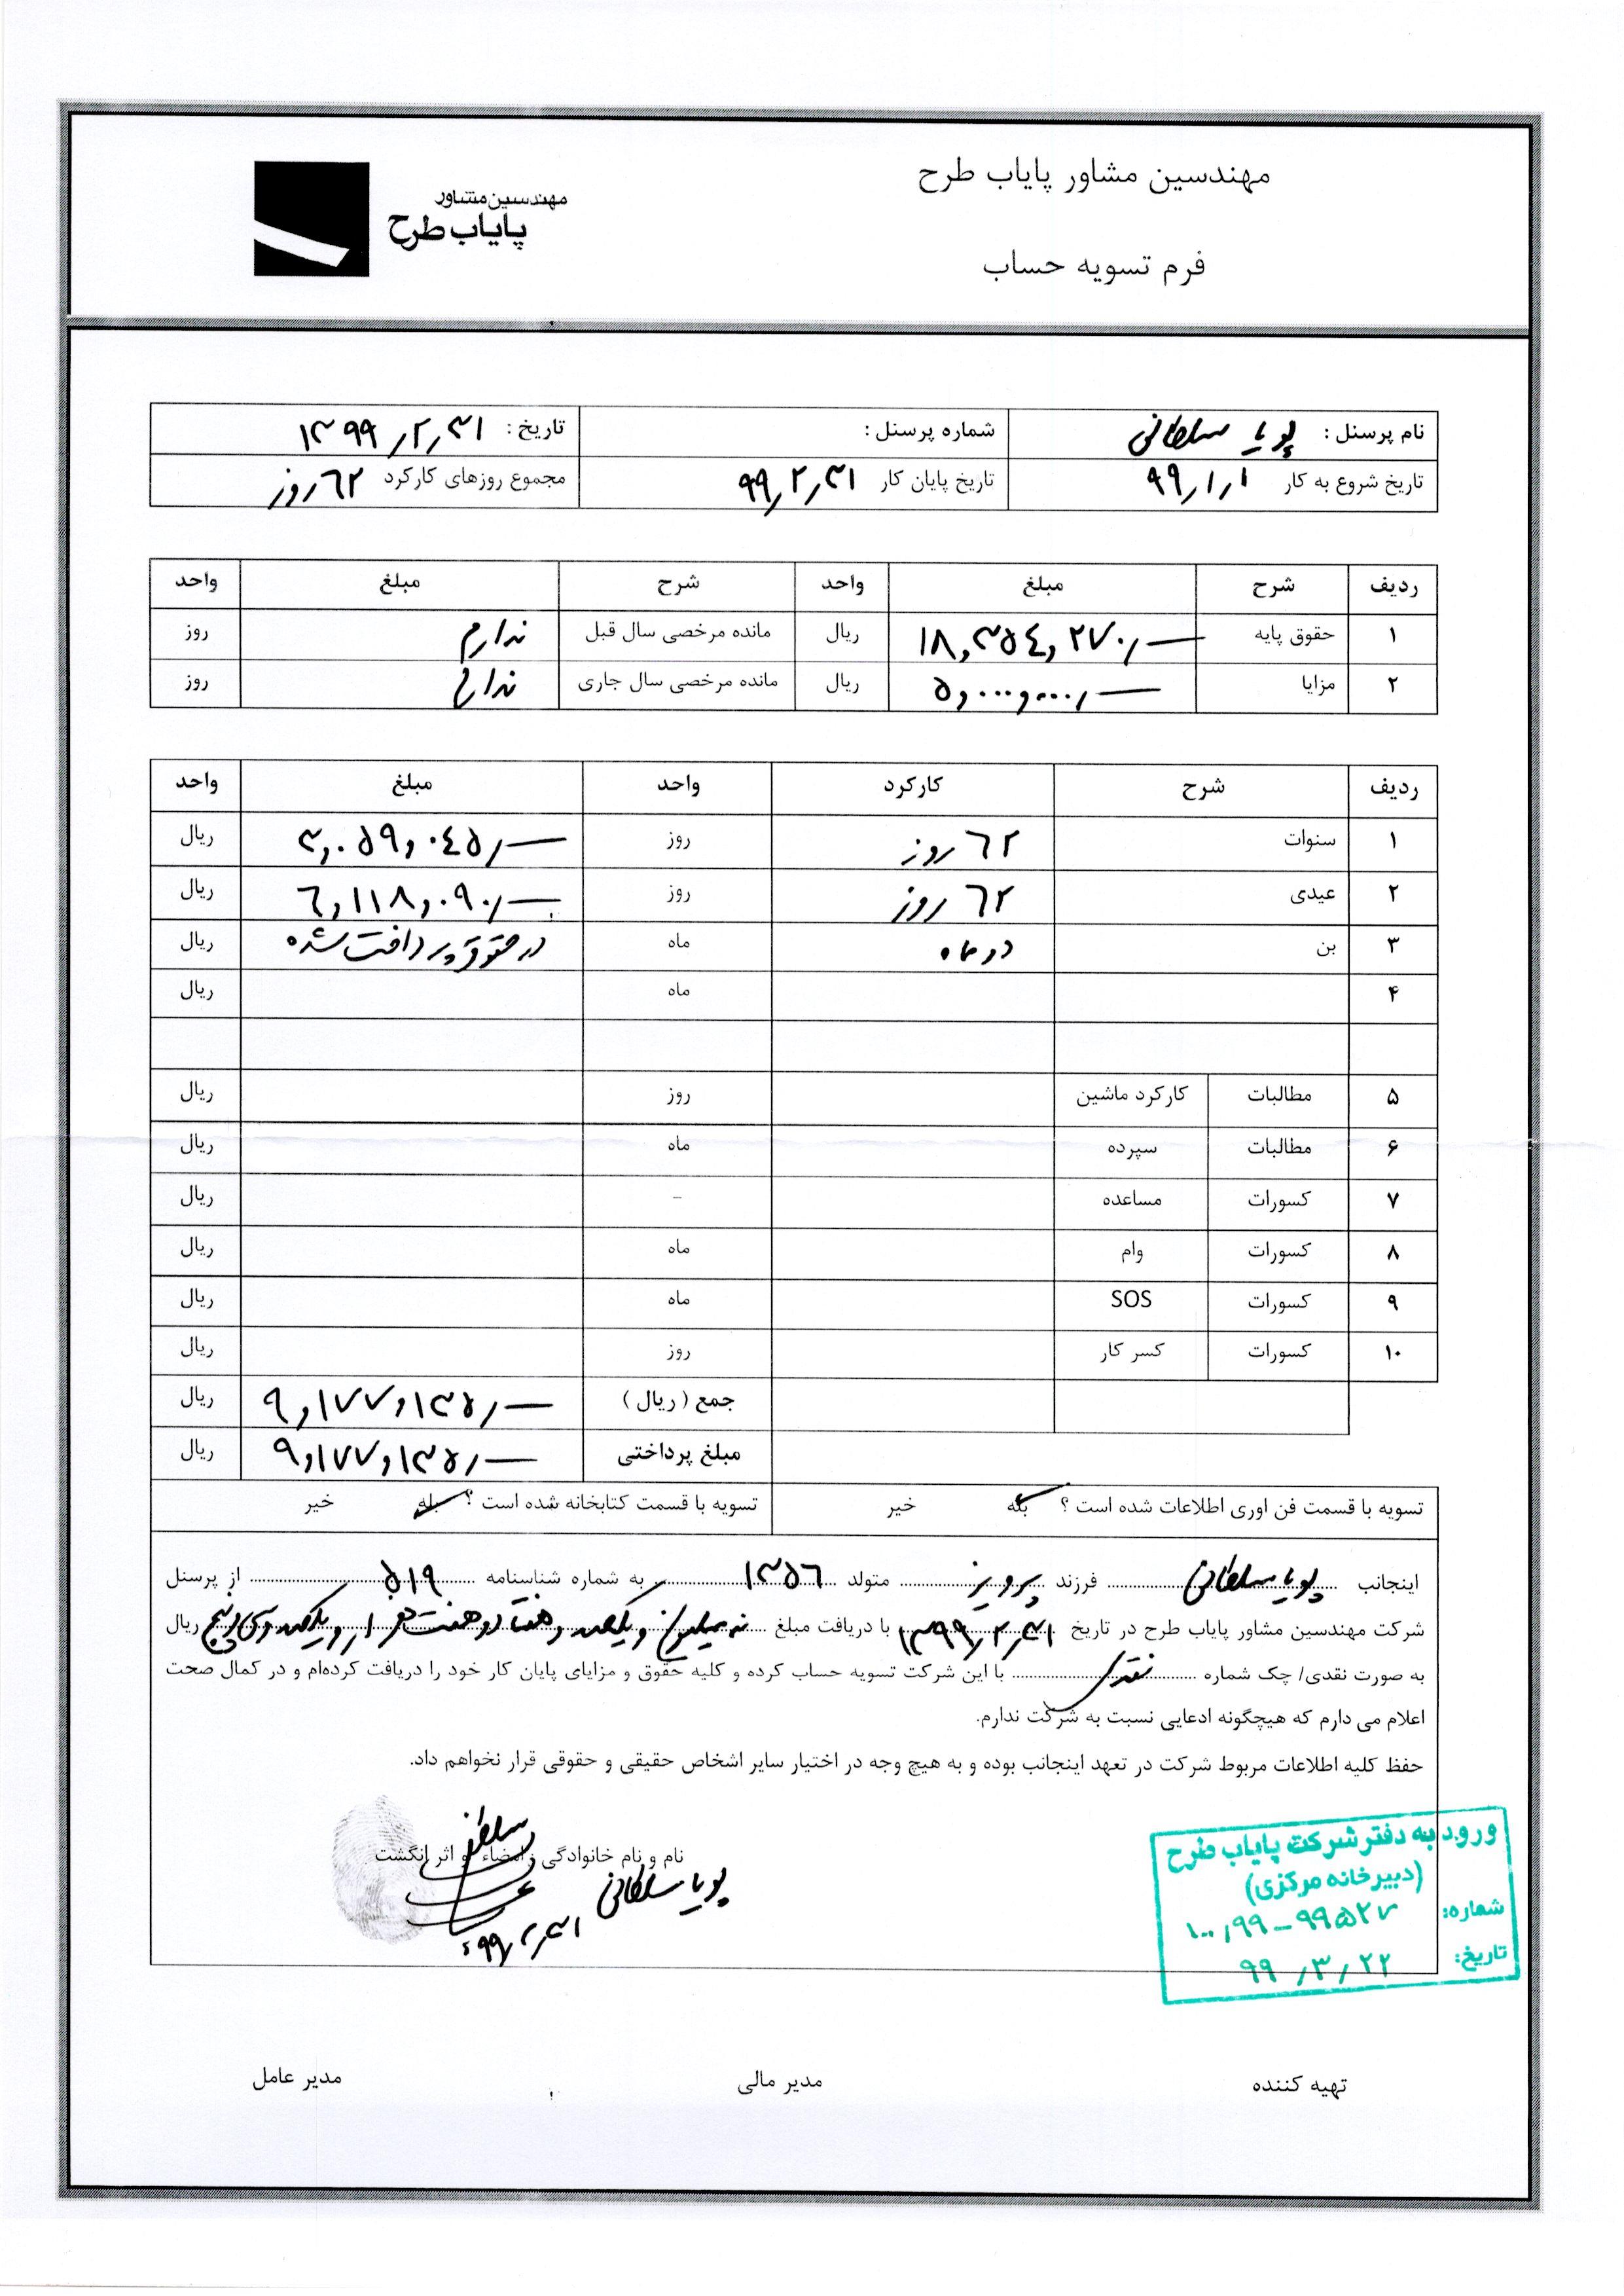 مهندسین مشاور پایاب طرح
مهندسین مشاور
پایاب طرح
فرم تسویه حساب
نام پرسنل : پویا سلطانی شماره پرسنل : تاریخ : ۱۳۹۹/۲/۳۱
تاریخ شروع به کار ۹۹/۱/۱ تاریخ پایان کار ۹۹/۲/۳۱ مجموع روزهای کارکرد ۶۲ روز
ردیف شرح مبلغ واحد شرح مبلغ واحد
۱ حقوق پایه ۱۸,۳۵٤,۲۷۰/— ریال مانده مرخصی سال قبل ندارم روز
۲ مزایا ۵,۰۰۰,۰۰۰/— ریال مانده مرخصی سال جاری ندارم روز
ردیف شرح کارکرد واحد مبلغ واحد
۱ سنوات ۶۲ روز روز ۳,۰۵۹,۰٤۵/— ریال
۲ عیدی ۶۲ روز روز ۶,۱۱۸,۰۹۰/— ریال
۳ بن دو ماه ماه در حقوق پرداخت شده ریال
۴ ماه ریال
۵ مطالبات کارکرد ماشین روز ریال
۶ مطالبات سپرده ماه ریال
۷ کسورات مساعده - ریال
۸ کسورات وام ماه ریال
۹ کسورات SOS ماه ریال
۱۰ کسورات کسر کار روز ریال
جمع ( ریال ) ۹,۱۷۷,۱۳۵/— ریال
مبلغ پرداختی ۹,۱۷۷,۱۳۵/— ریال
تسویه با قسمت فن اوری اطلاعات شده است ؟ بله خیر تسویه با قسمت کتابخانه شده است ؟ بله خیر
اینجانب پویا سلطانی فرزند پرویز متولد ۱۳۵۶ به شماره شناسنامه ۵۱۹ از پرسنل
شرکت مهندسین مشاور پایاب طرح در تاریخ ۱۳۹۹/۲/۳۱ با دریافت مبلغ نه میلیون و یکصد و هفتاد و هفت هزار و یکصد و سی و پنج ریال
به صورت نقدی/ چک شماره نقدی با این شرکت تسویه حساب کرده و کلیه حقوق و مزایای پایان کار خود را دریافت کرده‌ام و در کمال صحت
اعلام می دارم که هیچگونه ادعایی نسبت به شرکت ندارم.
حفظ کلیه اطلاعات مربوط شرکت در تعهد اینجانب بوده و به هیچ وجه در اختیار سایر اشخاص حقیقی و حقوقی قرار نخواهم داد.
نام و نام خانوادگی ، امضاء و اثر انگشت
پویا سلطانی
۹۹/۲/۳۱
ورود به دفتر شرکت پایاب طرح
(دبیرخانه مرکزی)
شماره: ۱۰۰/۹۹-۹۹۵۲۷
تاریخ: ۹۹/۳/۲۲
تهیه کننده مدیر مالی مدیر عامل